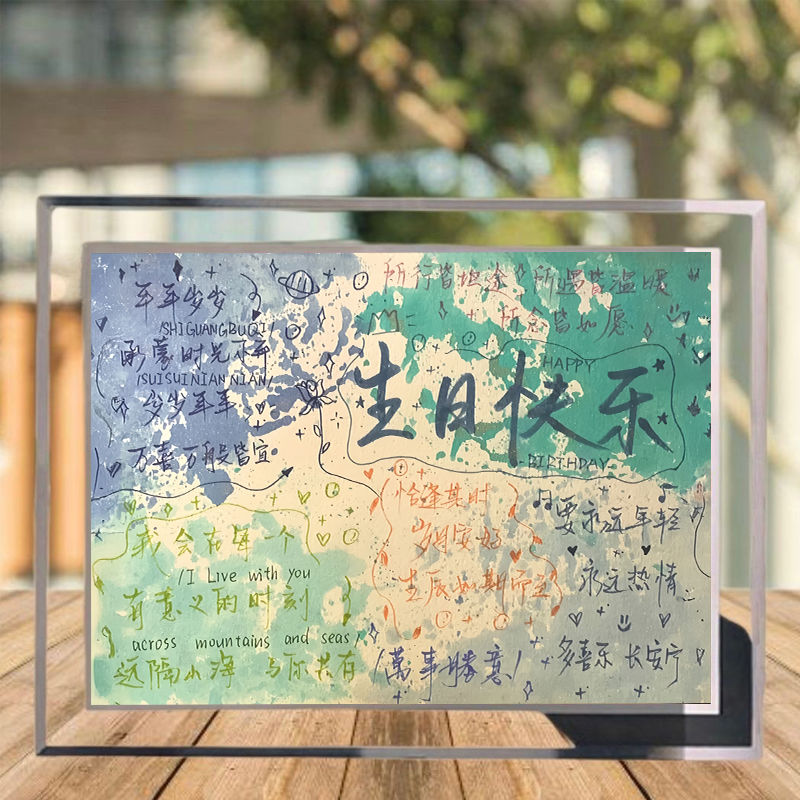 年年岁岁
/SHIGUANGBUQI/
承蒙时光不弃
/SUISUINIANNIAN/
岁岁年年
万喜万般皆宜
所行皆坦途 所遇皆温暖
所念皆如愿
HAPPY
生日快乐
BIRTHDAY
我会在每一个
/I Live with you
有意义的时刻
across mountains and seas/
远隔山海 与你共存
恰逢其时
岁月安好
生辰如期而至
/萬事勝意/
要永远年轻
永远热情
多喜乐 长安宁